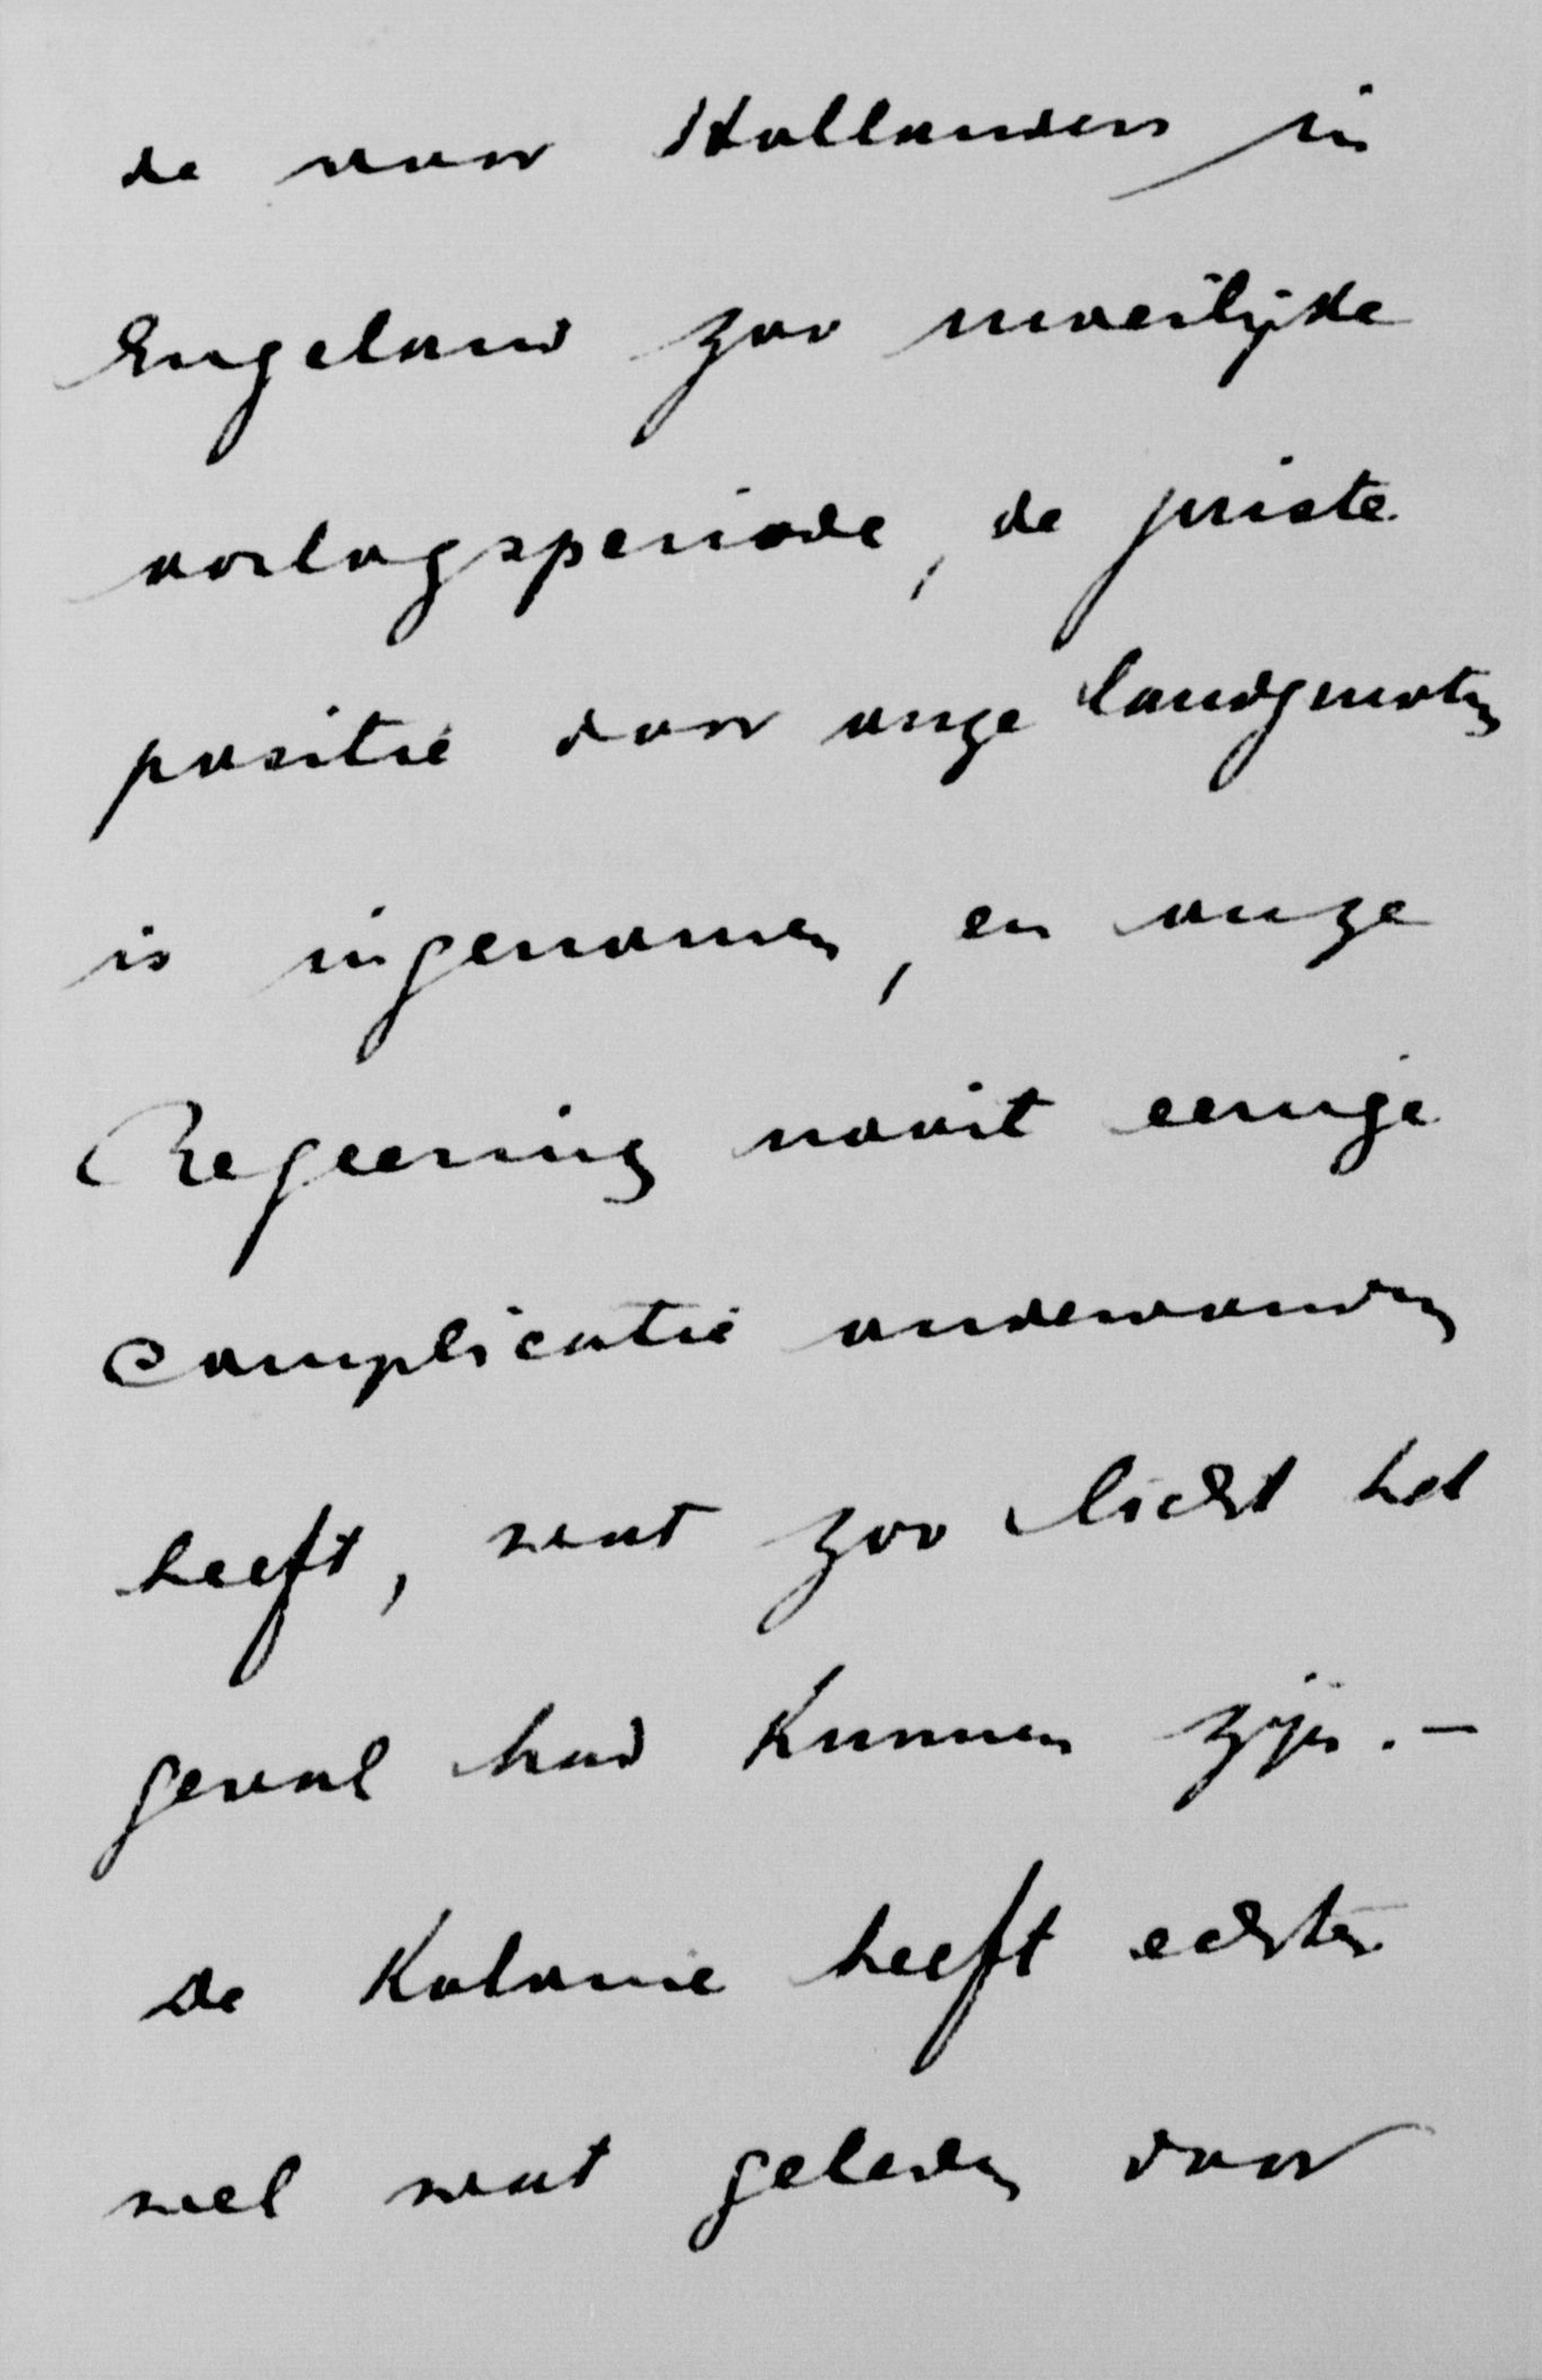 de voor Hollanders in
Engeland zoo moeilijke
oorlogsperiode, de juiste
positie door onze landgenoten
is ingenomen, en onze
Regeering nooit eenige
complicatie ondervonden
heeft, wat zoo licht het
geval had kunnen zijn. –
De Kolonie heeft echter
wel wat geleden door